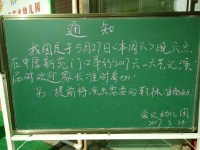 通知
我园定于5月27日(本周六)晚六点
在中厝新苑门口举行2017六一文艺汇演
届时欢迎家长准时参加
另:提前将演出需要的鞋袜准备好
爱心幼儿园
2017.5.24